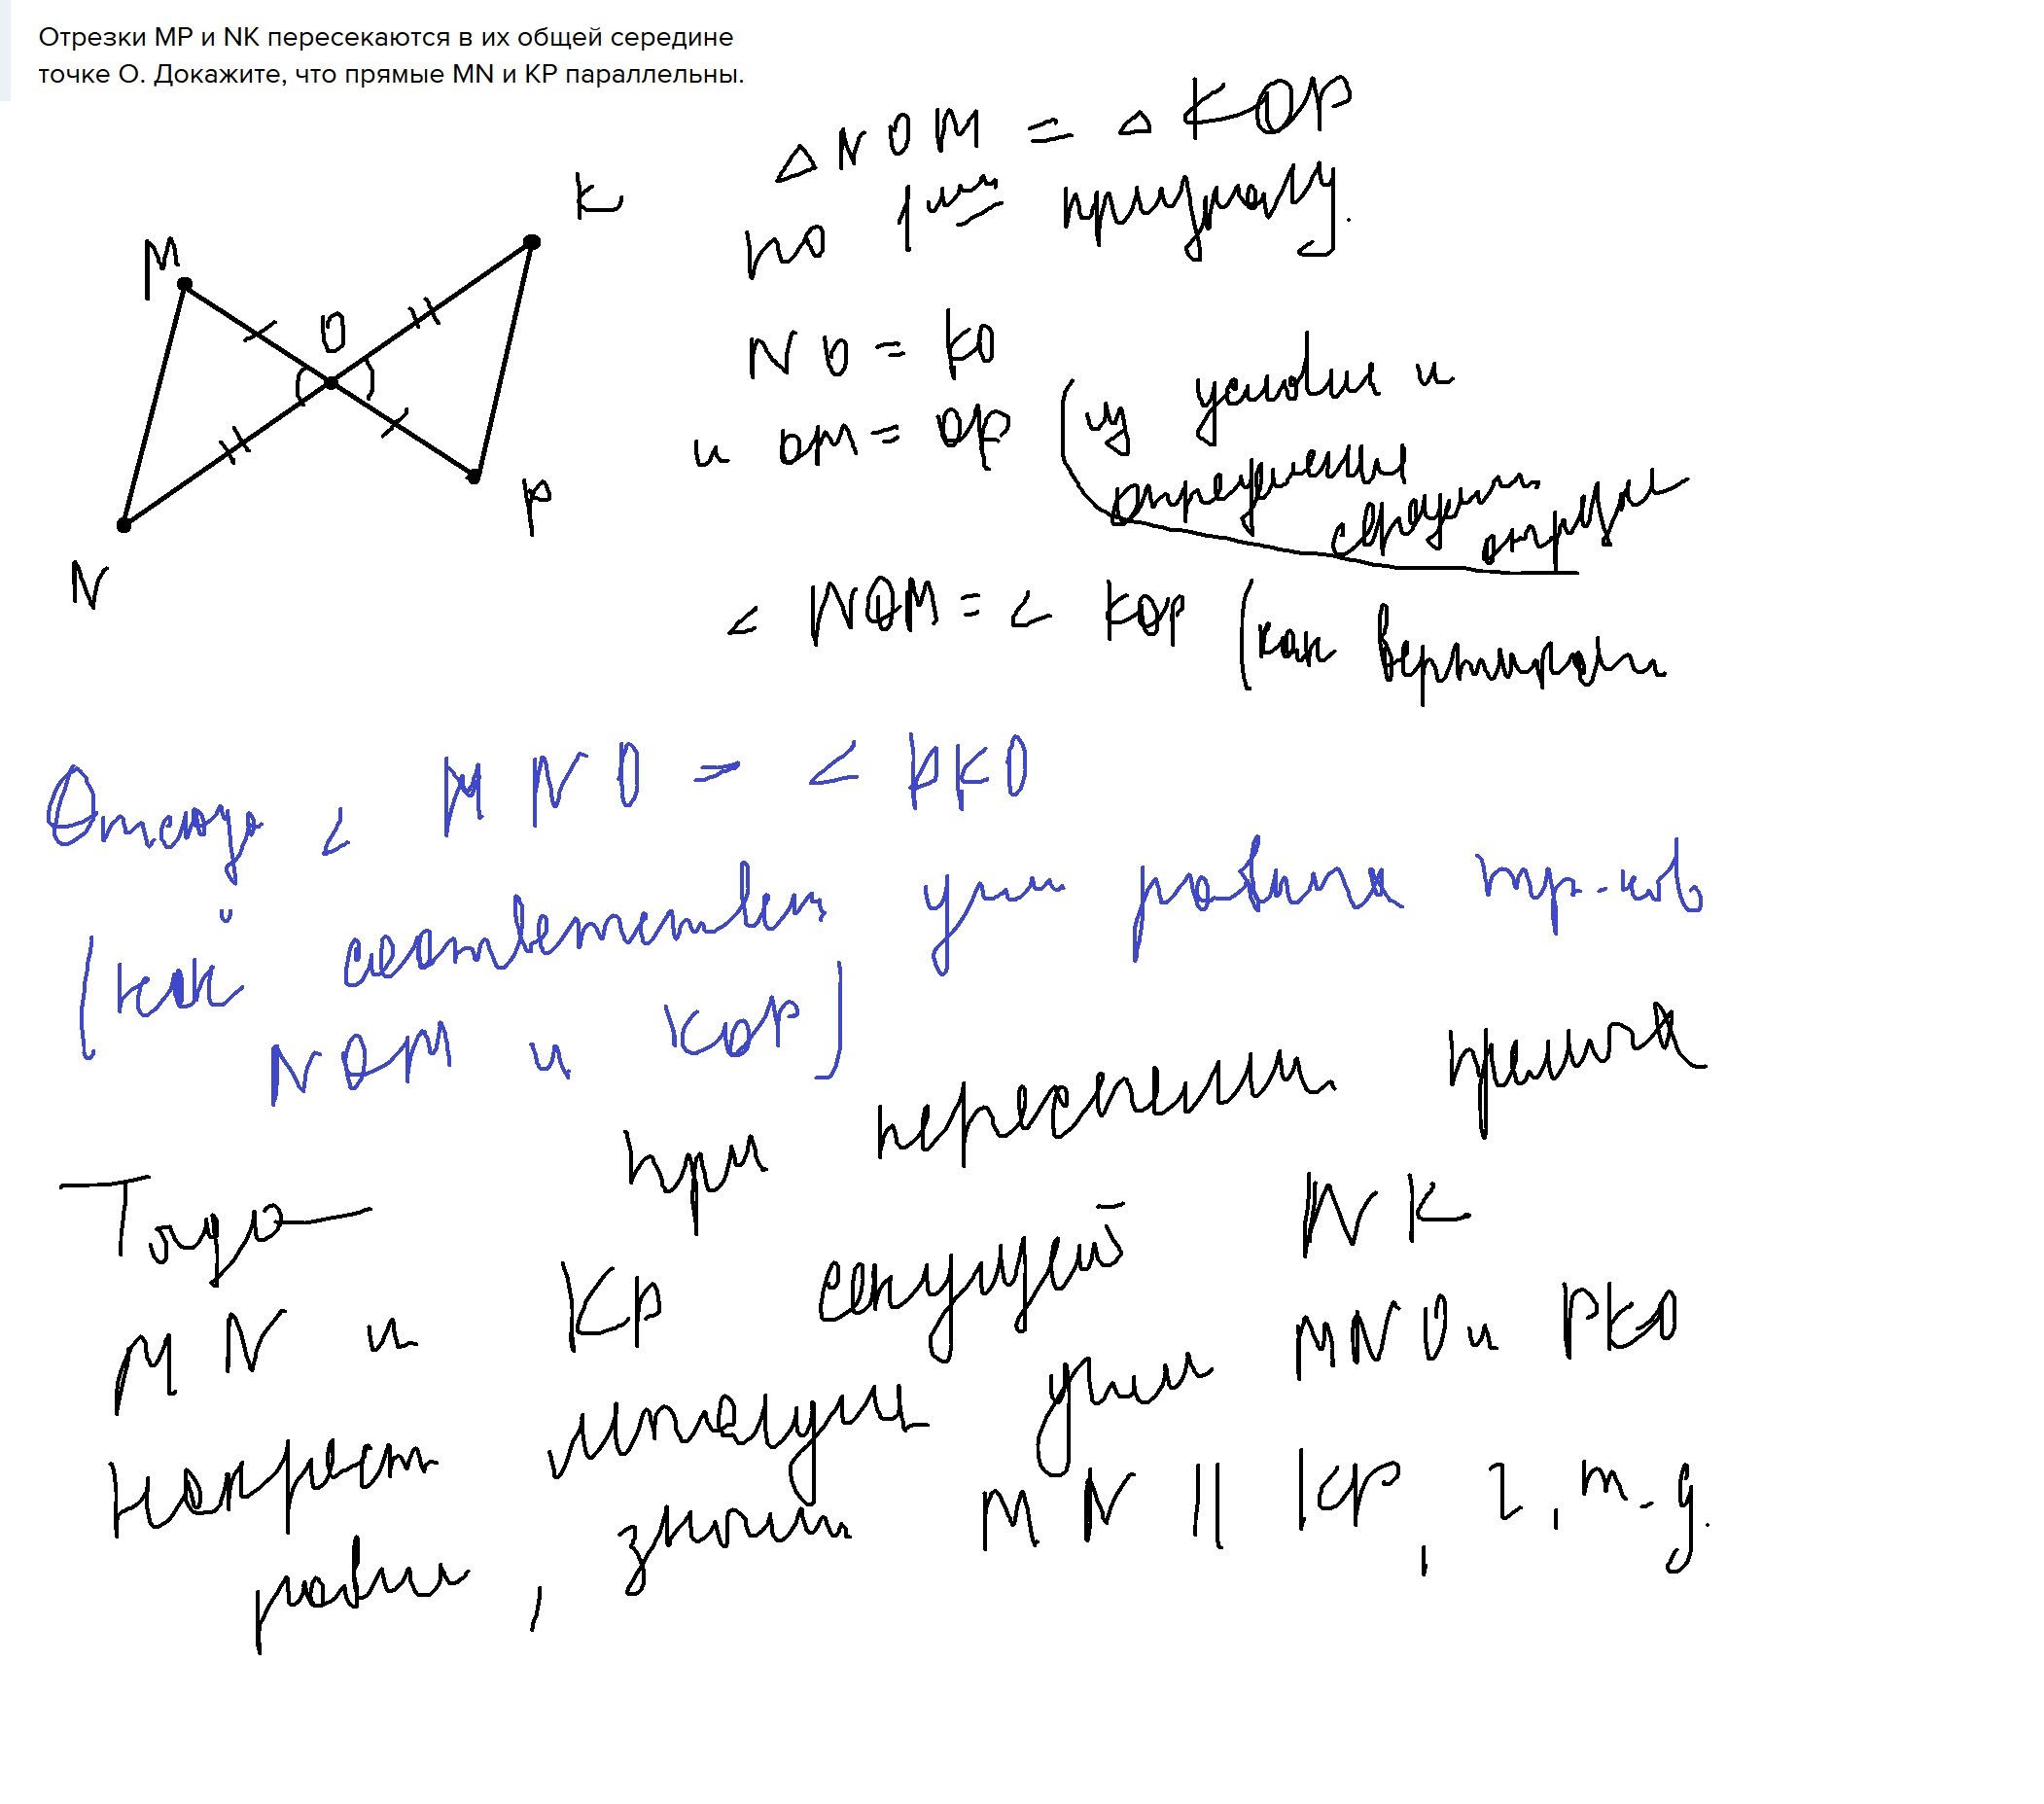 Отрезки MP и NK пересекаются в их общей середине
точке O. Докажите, что прямые MN и KP параллельны.
M
K
O
N
P
△ NOM = △ KOP
по 1му признаку.
NO = KO
и OM = OP (из условия и
определения
середины отрезка
∠ NOM = ∠ KOP (как вертикальн
Отсюда ∠ MNO = ∠ PKO
(как соответствен углы равных тр-ков
NOM и KOP)
Тогда при пересечении прямых
MN и KP секущей NK
накрест лежащие углы MNO и PKO
равны, значит MN || KP, ч.т.д.